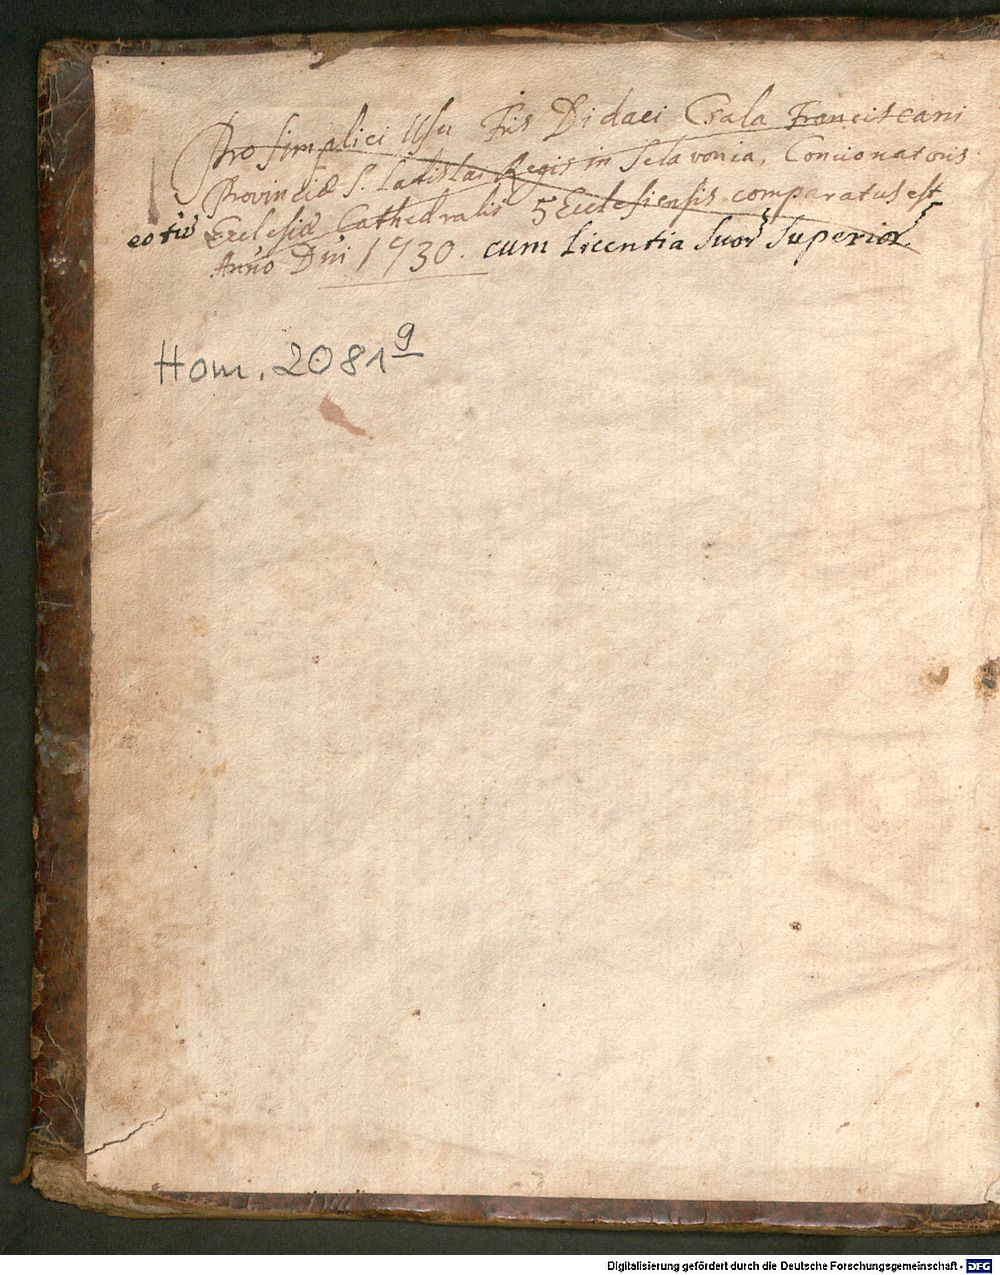 Pro simplici Usu Fris Didaci Csala Franciscani
Provinciæ S. Ladislai Regis in Sclavonia, Concionatoris
Ecclesiæ Cathedralis 5Ecclesiensis comparatus est
Anno Dni 1730. cum Licentia Suor Superior
Hom. 2081 g
Digitalisierung gefördert durch die Deutsche Forschungsgemeinschaft - DFG